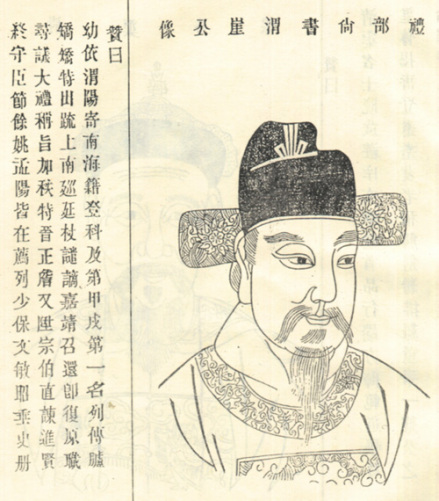 禮部尚書渭崖公像
贊曰
幼依渭陽寄南海籍登科及第甲戌第一名列傳臚
矯矯特出疏上南廵廷杖譴謫嘉靖召還卽復原職
尋議大禮稱旨加秩特晉正詹又陞宗伯直諫進賢
終守臣節餘姚孟陽皆在薦列少保文敏昭垂史册